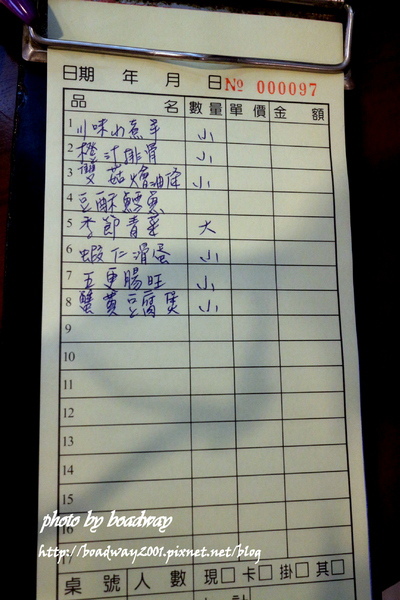 日期 年 月 日 № 000097
品名 數量 單價 金額
1 川味水煮羊 小
2 橙汁排骨 小
3 雙菇燴油條 小
4 豆酥鱈魚
5 季節青菜 大
6 蝦仁滑蛋 小
7 五更腸旺 小
8 蟹黃豆腐煲 小
9
10
11
12
13
14
15
16
17
photo by boadway
http://boadway2001.pixnet.net/blog
桌號 人數 現□ 卡□ 掛□ 其□
計